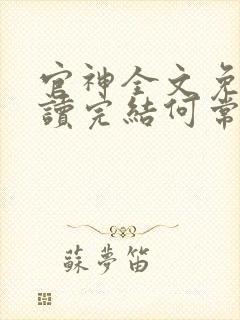 官神全文免
讀完結何常
蘇夢笛